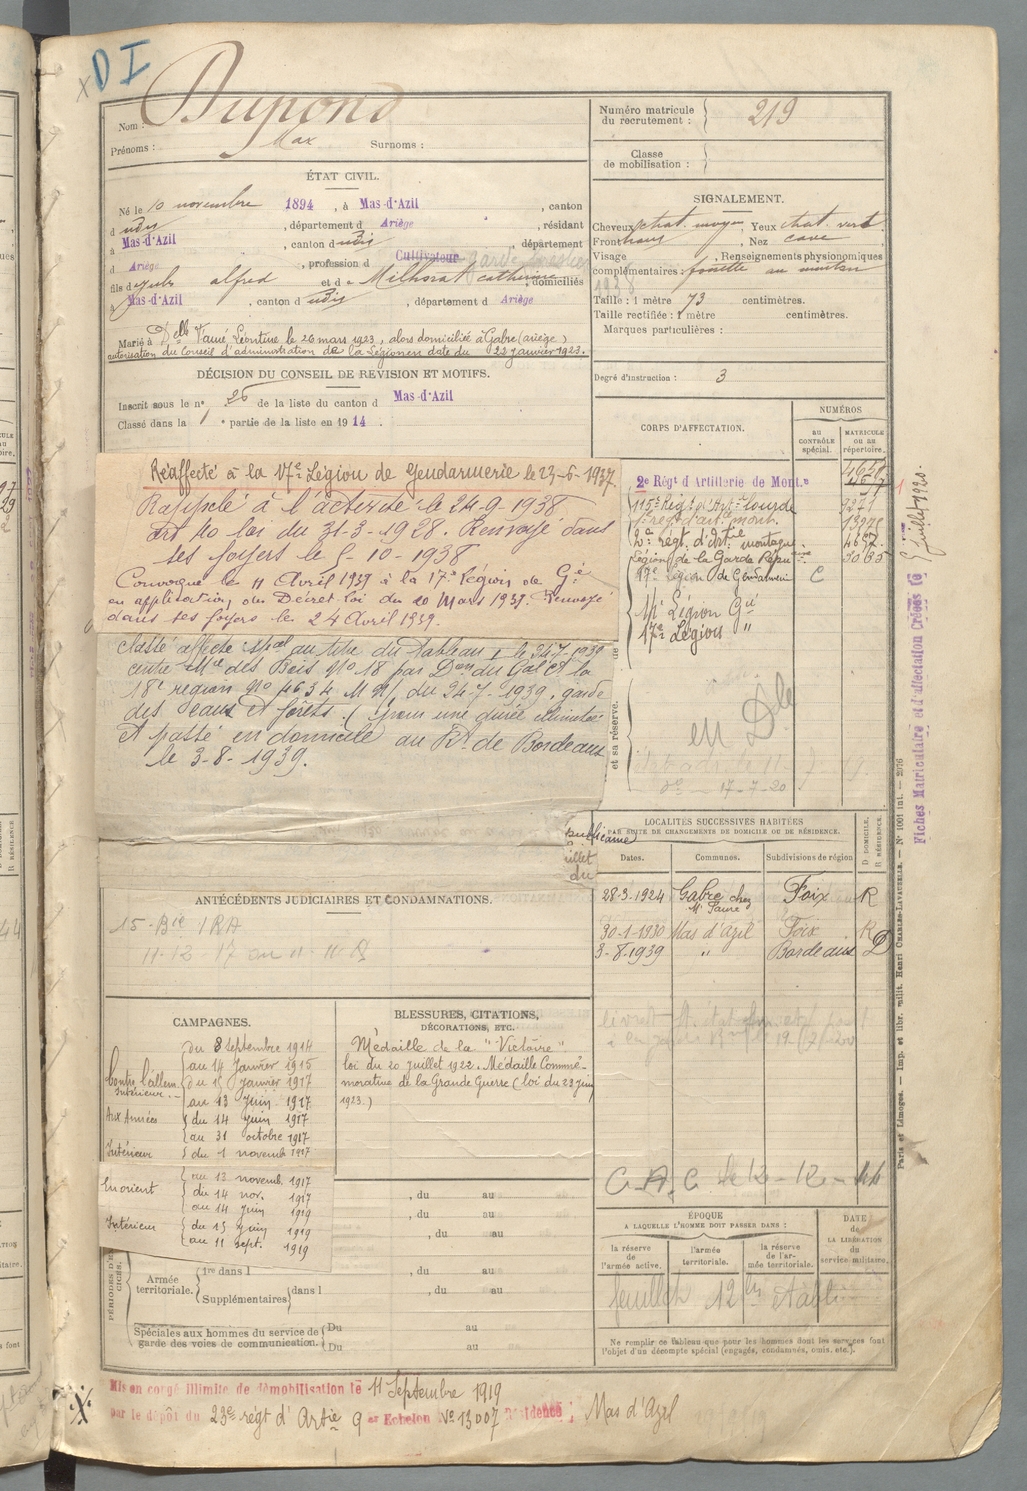 D I
Dupond
Nom :
Prénoms : Max Surnoms :
ÉTAT CIVIL.
Né le 10 novembre 1894, à Mas-d'Azil, canton
d udis, département d Ariège, résidant
à Mas-d'Azil, canton d udis, département
d Ariège, profession d Cultivateur garde forestier
fils d Jules alfred et d e Milhorat catherine, domiciliés
à Mas-d'Azil, canton d udis, département d Ariège
Marié à Delle Fauré Léontine le 26 mars 1923, alors domicilié à Gabre (ariège)
autorisation du Conseil d'administration de la Légion en date du 22 janvier 1923.
DÉCISION DU CONSEIL DE REVISION ET MOTIFS.
Inscrit sous le n° 26 de la liste du canton d Mas-d'Azil
Classé dans la 1 e partie de la liste en 1914.
Réaffecté à la 17e Légion de Gendarmerie le 23-6-1937
Rappelé à l'activité le 24-9-1938
Art 40 loi du 31-3-1928. Renvoyé dans
ses foyers le 5-10-1938
Convoqué le 11 Avril 1939 à la 17e Légion de Gie
en application du Décret loi du 20 Mars 1939. Renvoyé
dans ses foyers le 24 Avril 1939.
Classé affecté spal au titre du Tableau I le 24-7-1939
centre Mre des Bois No 18 par Don du Gal Ct la
18e région No 4634 M N/ du 24-7-1939, garde
des Eaux et forêts. (pour une durée illimitée
et passé en domicile au Rt de Bordeaux
le 3-8-1939.
ANTÉCÉDENTS JUDICIAIRES ET CONDAMNATIONS.
15e Bie 1 RA
11-12-17 au 11-11-18
CAMPAGNES.
Contre l'allem.
Intérieur.
du 8 Septembre 1914
au 14 Janvier 1915
du 15 janvier 1917
au 13 juin 1917
Aux Armées
du 14 juin 1917
au 31 octobre 1917
Intérieur
du 1 novemb 1917
au 13 novemb. 1917
En orient
du 14 nov. 1917
au 14 juin 1919
Intérieur
du 15 juin 1919
au 11 sept. 1919
BLESSURES, CITATIONS,
DÉCORATIONS, ETC.
Médaille de la "Victoire"
loi du 20 juillet 1922. Médaille Commé-
morative de la Grande Guerre (loi du 23 juin
1923.)
, du au
, du au
, du au
Armée territoriale. 1re dans l , du au
Supplémentaires dans l , du au
Spéciales aux hommes du service de garde des voies de communication. Du au
Du au
Numéro matricule du recrutement : 219
Classe de mobilisation :
SIGNALEMENT.
Cheveux chat. moyen, Yeux chat. vert
Front haut, Nez cave
Visage , Renseignements physionomiques
complémentaires : fossette au menton
1938
Taille : 1 mètre 73 centimètres.
Taille rectifiée : 1 mètre centimètres.
Marques particulières :
Degré d'instruction : 3
CORPS D'AFFECTATION.
NUMÉROS
AU CONTRÔLE spécial.
MATRICULE OU AU répertoire.
2e Régt d'Artillerie de Mont.ne
115e Régt d'Arte lourde 9271
1er reg. d'art. mont.
2e régt. d'Artie montagne 4657
Légion de la Garde Répu ne 3085
13e Légion de Gendarmerie C
17e Légion Gie
17e Légion "
et sa réserve.
en Dle
17-7-20
LOCALITÉS SUCCESSIVES HABITÉES
PAR SUITE DE CHANGEMENTS DE DOMICILE OU DE RÉSIDENCE.
Dates. Communes. Subdivisions de région D DOMICILE. R RÉSIDENCE.
28-3-1924 Gabre chez Mr Faure Foix R
30-1-1930 Mas d'azil Foix R
3-8-1939 " Bordeaux D
C.A.C. le 12-12-44
ÉPOQUE
A LAQUELLE L'HOMME DOIT PASSER DANS :
la réserve de l'armée active.
l'armée territoriale.
la réserve de l'armée territoriale.
DATE de LA LIBÉRATION du service militaire.
feuillet 12 bis établi
Ne remplir ce tableau que pour les hommes dont les services font
l'objet d'un décompte spécial (engagés, condamnés, omis, etc.).
Mis en congé illimité de démobilisation le 11 Septembre 1919
par le dépôt du 23e régt d'Artie 9 er Echelon No 13007 Résidence ; Mas d'Azil
Fiches Matriculaire et d'affectation Créées le 1 Juillet 1920.
Paris et Limoges. — Imp. et libr. milit. Henri CHARLES-LAVAUZELLE. — N° 1001 int. — 2076